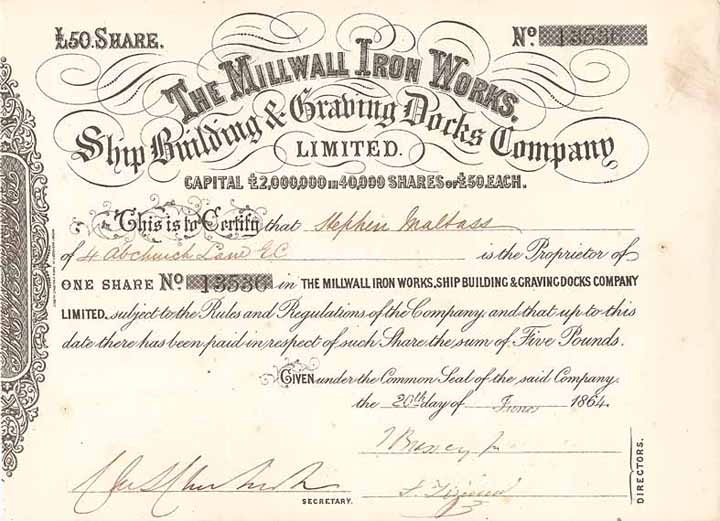 £50. SHARE.
No. 13536
THE MILLWALL IRON WORKS.
Ship Building & Graving Docks Company
LIMITED.
CAPITAL £2,000,000 IN 40,000 SHARES OF £50. EACH.
This is to Certify that Stephen Maltass
of 4 Abchurch Lane E.C is the Proprietor of
ONE SHARE No 13536 in THE MILLWALL IRON WORKS, SHIP BUILDING & GRAVING DOCKS COMPANY
LIMITED. subject to the Rules and Regulations of the Company and that up to this
date there has been paid in respect of such Share the sum of Five Pounds.
GIVEN under the Common Seal of the said Company.
the 20th day of June 1864.
DIRECTORS.
SECRETARY.